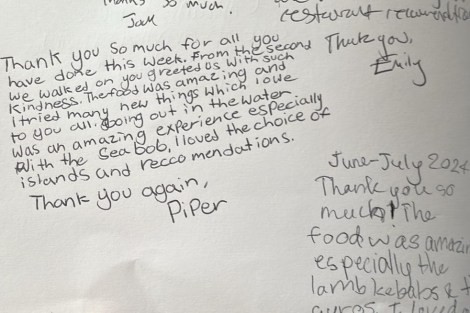 so much.
Jack
restaurant
Thank you,
Emily
Thank you so much for all you
have done this week. From the second
we walked on you greeted us with such
kindness. The food was amazing and
I tried many new things which i owe
to you all. Going out in the water
was an amazing experience especially
with the Seabob, I loved the choice of
islands and reccomendations.
Thank you again,
Piper
June-July 2024
Thank you so
much! The
food was amazin
especially the
lamb kebabs &
gyros I loved